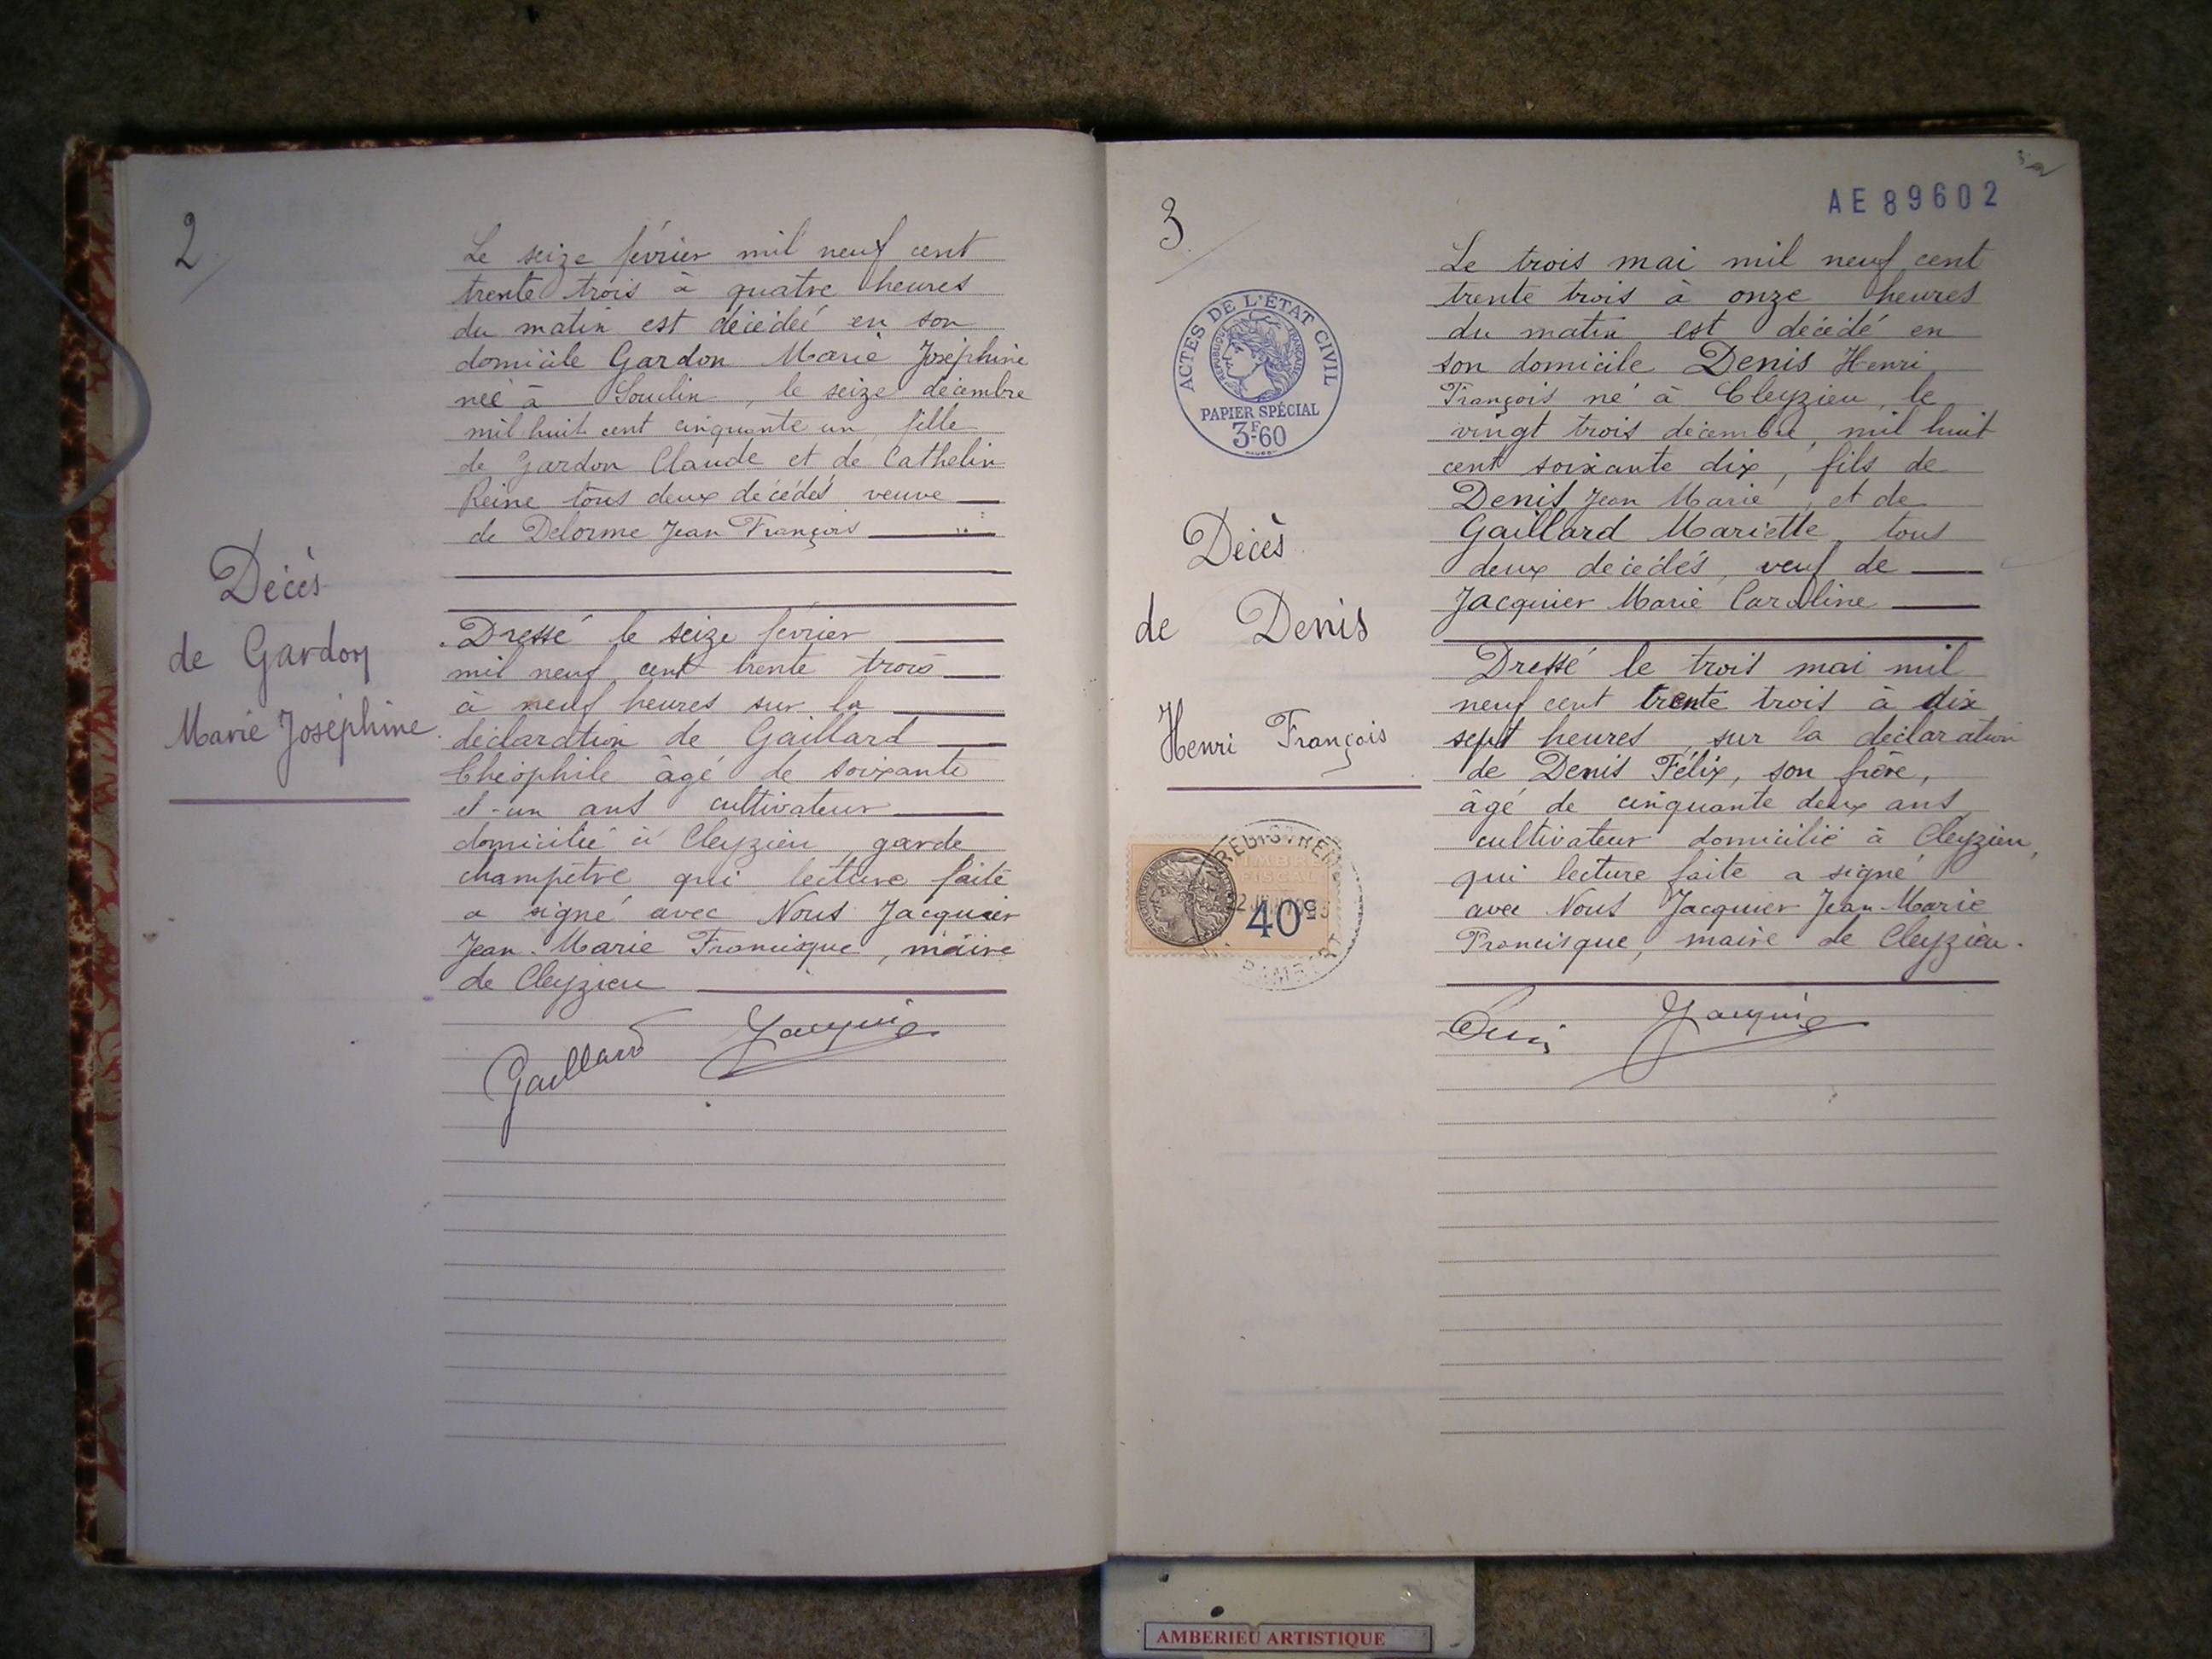 2
Le seize février mil neuf cent
trente trois à quatre heures
du matin est décédée en son
domicile Gardon Marie Joséphine
née à Souclin, le seize décembre
mil huit cent cinquante un, fille
de Gardon Claude et de Cathelin
Reine tous deux décédés veuve
de Delorme Jean François
Décès
de Gardon
Marie Joséphine.
Dressé le seize février
mil neuf cent trente trois
à neuf heures sur la
déclaration de Gaillard
Théophile âgé de soixante
et-un ans cultivateur
domicilié à Cleyzieu garde
champêtre qui lecture faite
a signé avec Nous Jacquier
Jean-Marie Francisque, maire
de Cleyzieu
Gaillard Jacquier
3
AE 89602
ACTES DE L'ÉTAT CIVIL
RÉPUBLIQUE FRANÇAISE
PAPIER SPÉCIAL
3F.60
Le trois mai mil neuf cent
trente trois à onze heures
du matin est décédé en
son domicile Denis Henri
François né à Cleyzieu, le
vingt trois décembre, mil huit
cent soixante dix, fils de
Denis Jean Marie, et de
Gaillard Mariette tous
deux décédés, veuf de
Jacquier Marie Caroline
Décès
de Denis
Henri François
Dressé le trois mai mil
neuf cent trente trois à dix
sept heures, sur la déclaration
de Denis Félix, son frère,
âgé de cinquante deux ans
cultivateur domicilié à Cleyzieu,
qui lecture faite a signé
avec Nous Jacquier Jean-Marie
Francisque, maire de Cleyzieu.
TIMBRE
FISCAL
40c
Denis Jacquier
AMBERIEU ARTISTIQUE